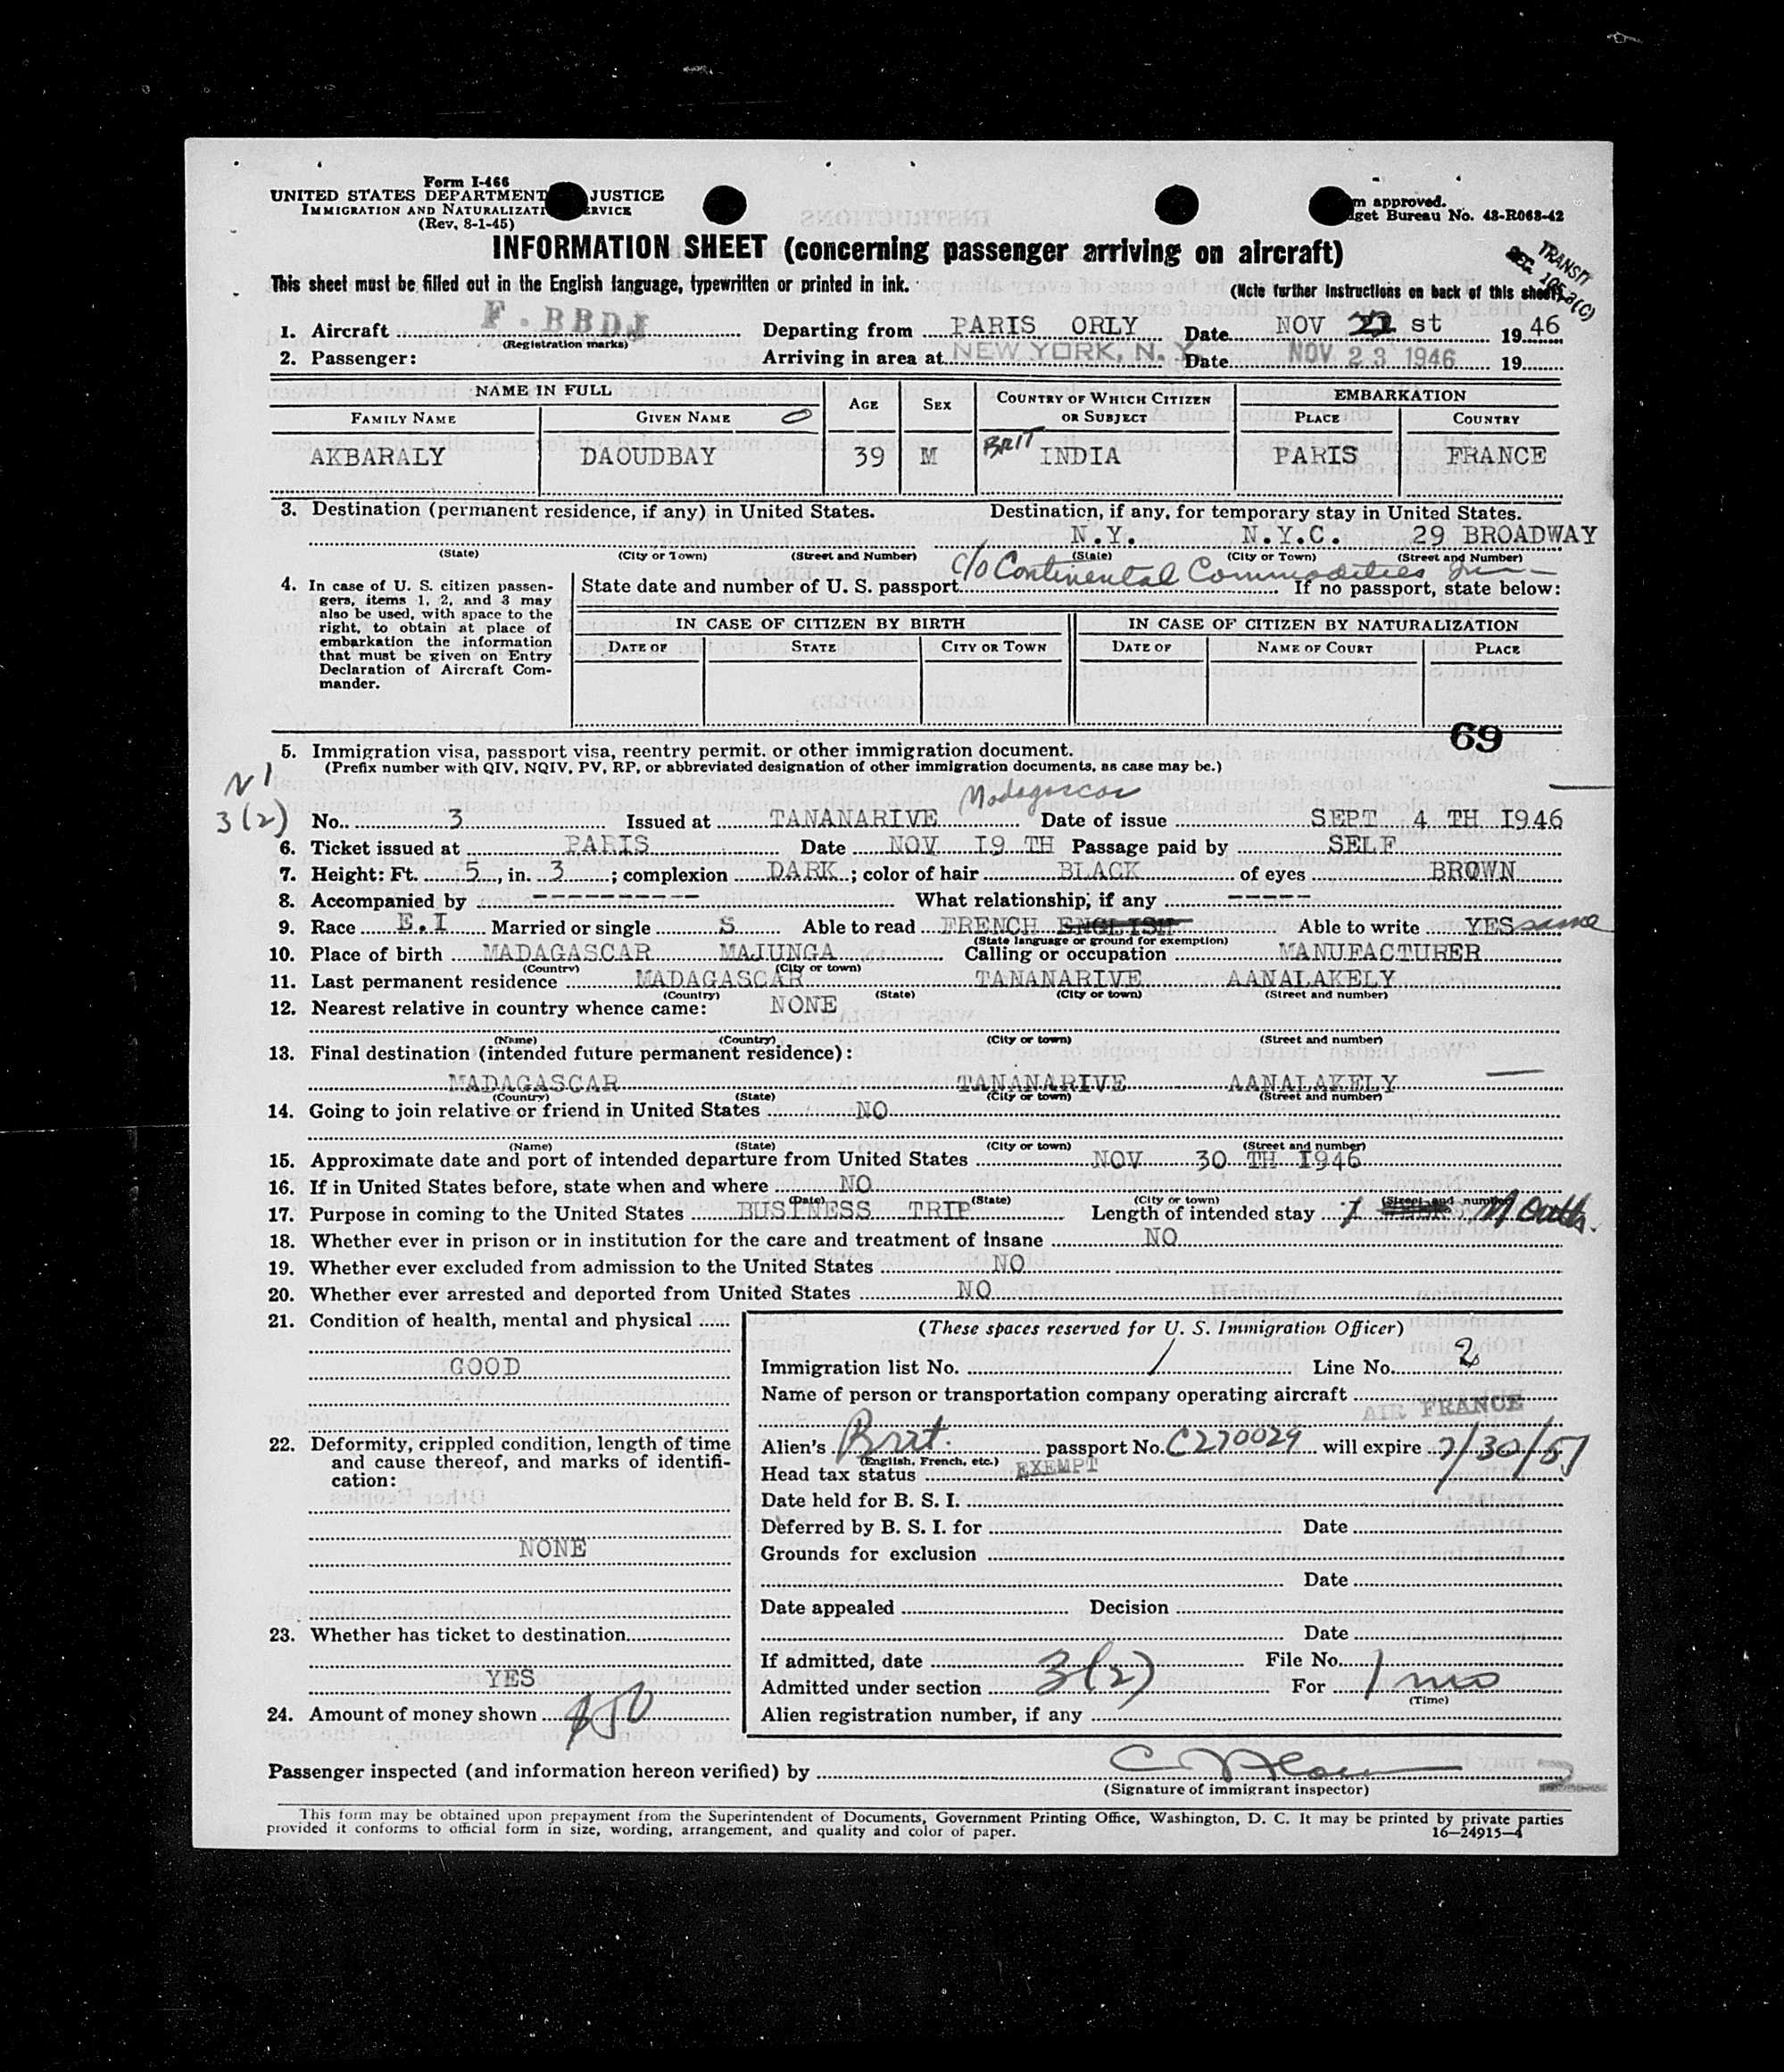 Form I-466
UNITED STATES DEPARTMENT JUSTICE
IMMIGRATION AND NATURALIZATI ERVICE
(Rev. 8-1-45)
m approved.
get Bureau No. 43-R068-42
INFORMATION SHEET (concerning passenger arriving on aircraft)
TRANSIT
SEC. 105.3(C)
This sheet must be filled out in the English language, typewritten or printed in ink.
(Note further instructions on back of this sheet)
1. Aircraft F.BBDJ Departing from PARIS ORLY Date NOV st 1946
(Registration marks)
2. Passenger: Arriving in area at NEW YORK, N. Y. Date NOV 23 1946 19
NAME IN FULL AGE SEX COUNTRY OF WHICH CITIZEN OR SUBJECT EMBARKATION
FAMILY NAME GIVEN NAME PLACE COUNTRY
AKBARALY DAOUDBAY 39 M BRIT INDIA PARIS FRANCE
3. Destination (permanent residence, if any) in United States. Destination, if any, for temporary stay in United States.
N.Y. N.Y.C. 29 BROADWAY
(State) (City or Town) (Street and Number) (State) (City or Town) (Street and Number)
c/o Continental Commodities Inc
4. In case of U. S. citizen passen-
gers, items 1, 2, and 3 may
also be used, with space to the
right, to obtain at place of
embarkation the information
that must be given on Entry
Declaration of Aircraft Com-
mander.
State date and number of U. S. passport If no passport, state below:
IN CASE OF CITIZEN BY BIRTH IN CASE OF CITIZEN BY NATURALIZATION
DATE OF STATE CITY OR TOWN DATE OF NAME OF COURT PLACE
69
5. Immigration visa, passport visa, reentry permit, or other immigration document.
(Prefix number with QIV, NQIV, PV, RP, or abbreviated designation of other immigration documents, as case may be.)
Madagascar
3(2) No. 3 Issued at TANANARIVE Date of issue SEPT 4 TH I946
6. Ticket issued at PARIS Date NOV I9 TH Passage paid by SELF
7. Height: Ft. 5, in. 3; complexion DARK; color of hair BLACK of eyes BROWN
8. Accompanied by ----------- What relationship, if any -----
9. Race E.I Married or single S Able to read FRENCH ENGLISH Able to write YES same
(State language or ground for exemption)
10. Place of birth MADAGASCAR MAJUNGA Calling or occupation MANUFACTURER
(Country) (City or town)
11. Last permanent residence MADAGASCAR TANANARIVE AANALAKELY
(Country) (State) (City or town) (Street and number)
12. Nearest relative in country whence came: NONE
(Name) (Country) (City or town) (Street and number)
13. Final destination (intended future permanent residence):
MADAGASCAR TANANARIVE AANALAKELY
(Country) (State) (City or town) (Street and number)
14. Going to join relative or friend in United States NO
(Name) (State) (City or town) (Street and number)
15. Approximate date and port of intended departure from United States NOV 30 TH I946
16. If in United States before, state when and where NO
(Date) (State) (City or town) (Street and number)
17. Purpose in coming to the United States BUSINESS TRIP Length of intended stay 1 Month.
18. Whether ever in prison or in institution for the care and treatment of insane NO
19. Whether ever excluded from admission to the United States NO
20. Whether ever arrested and deported from United States NO
21. Condition of health, mental and physical
GOOD
22. Deformity, crippled condition, length of time
and cause thereof, and marks of identifi-
cation:
NONE
23. Whether has ticket to destination
YES
24. Amount of money shown $50
(These spaces reserved for U. S. Immigration Officer)
Immigration list No. 1 Line No. 2
Name of person or transportation company operating aircraft
AIR FRANCE
Alien's Brit. passport No. C270029 will expire 7/30/51
(English, French, etc.)
Head tax status EXEMPT
Date held for B. S. I.
Deferred by B. S. I. for Date
Grounds for exclusion
Date
Date appealed Decision
Date
If admitted, date File No.
Admitted under section 3(2) For 1 mo
(Time)
Alien registration number, if any
Passenger inspected (and information hereon verified) by
(Signature of immigrant inspector)
This form may be obtained upon prepayment from the Superintendent of Documents, Government Printing Office, Washington, D. C. It may be printed by private parties
provided it conforms to official form in size, wording, arrangement, and quality and color of paper. 16—24915-4